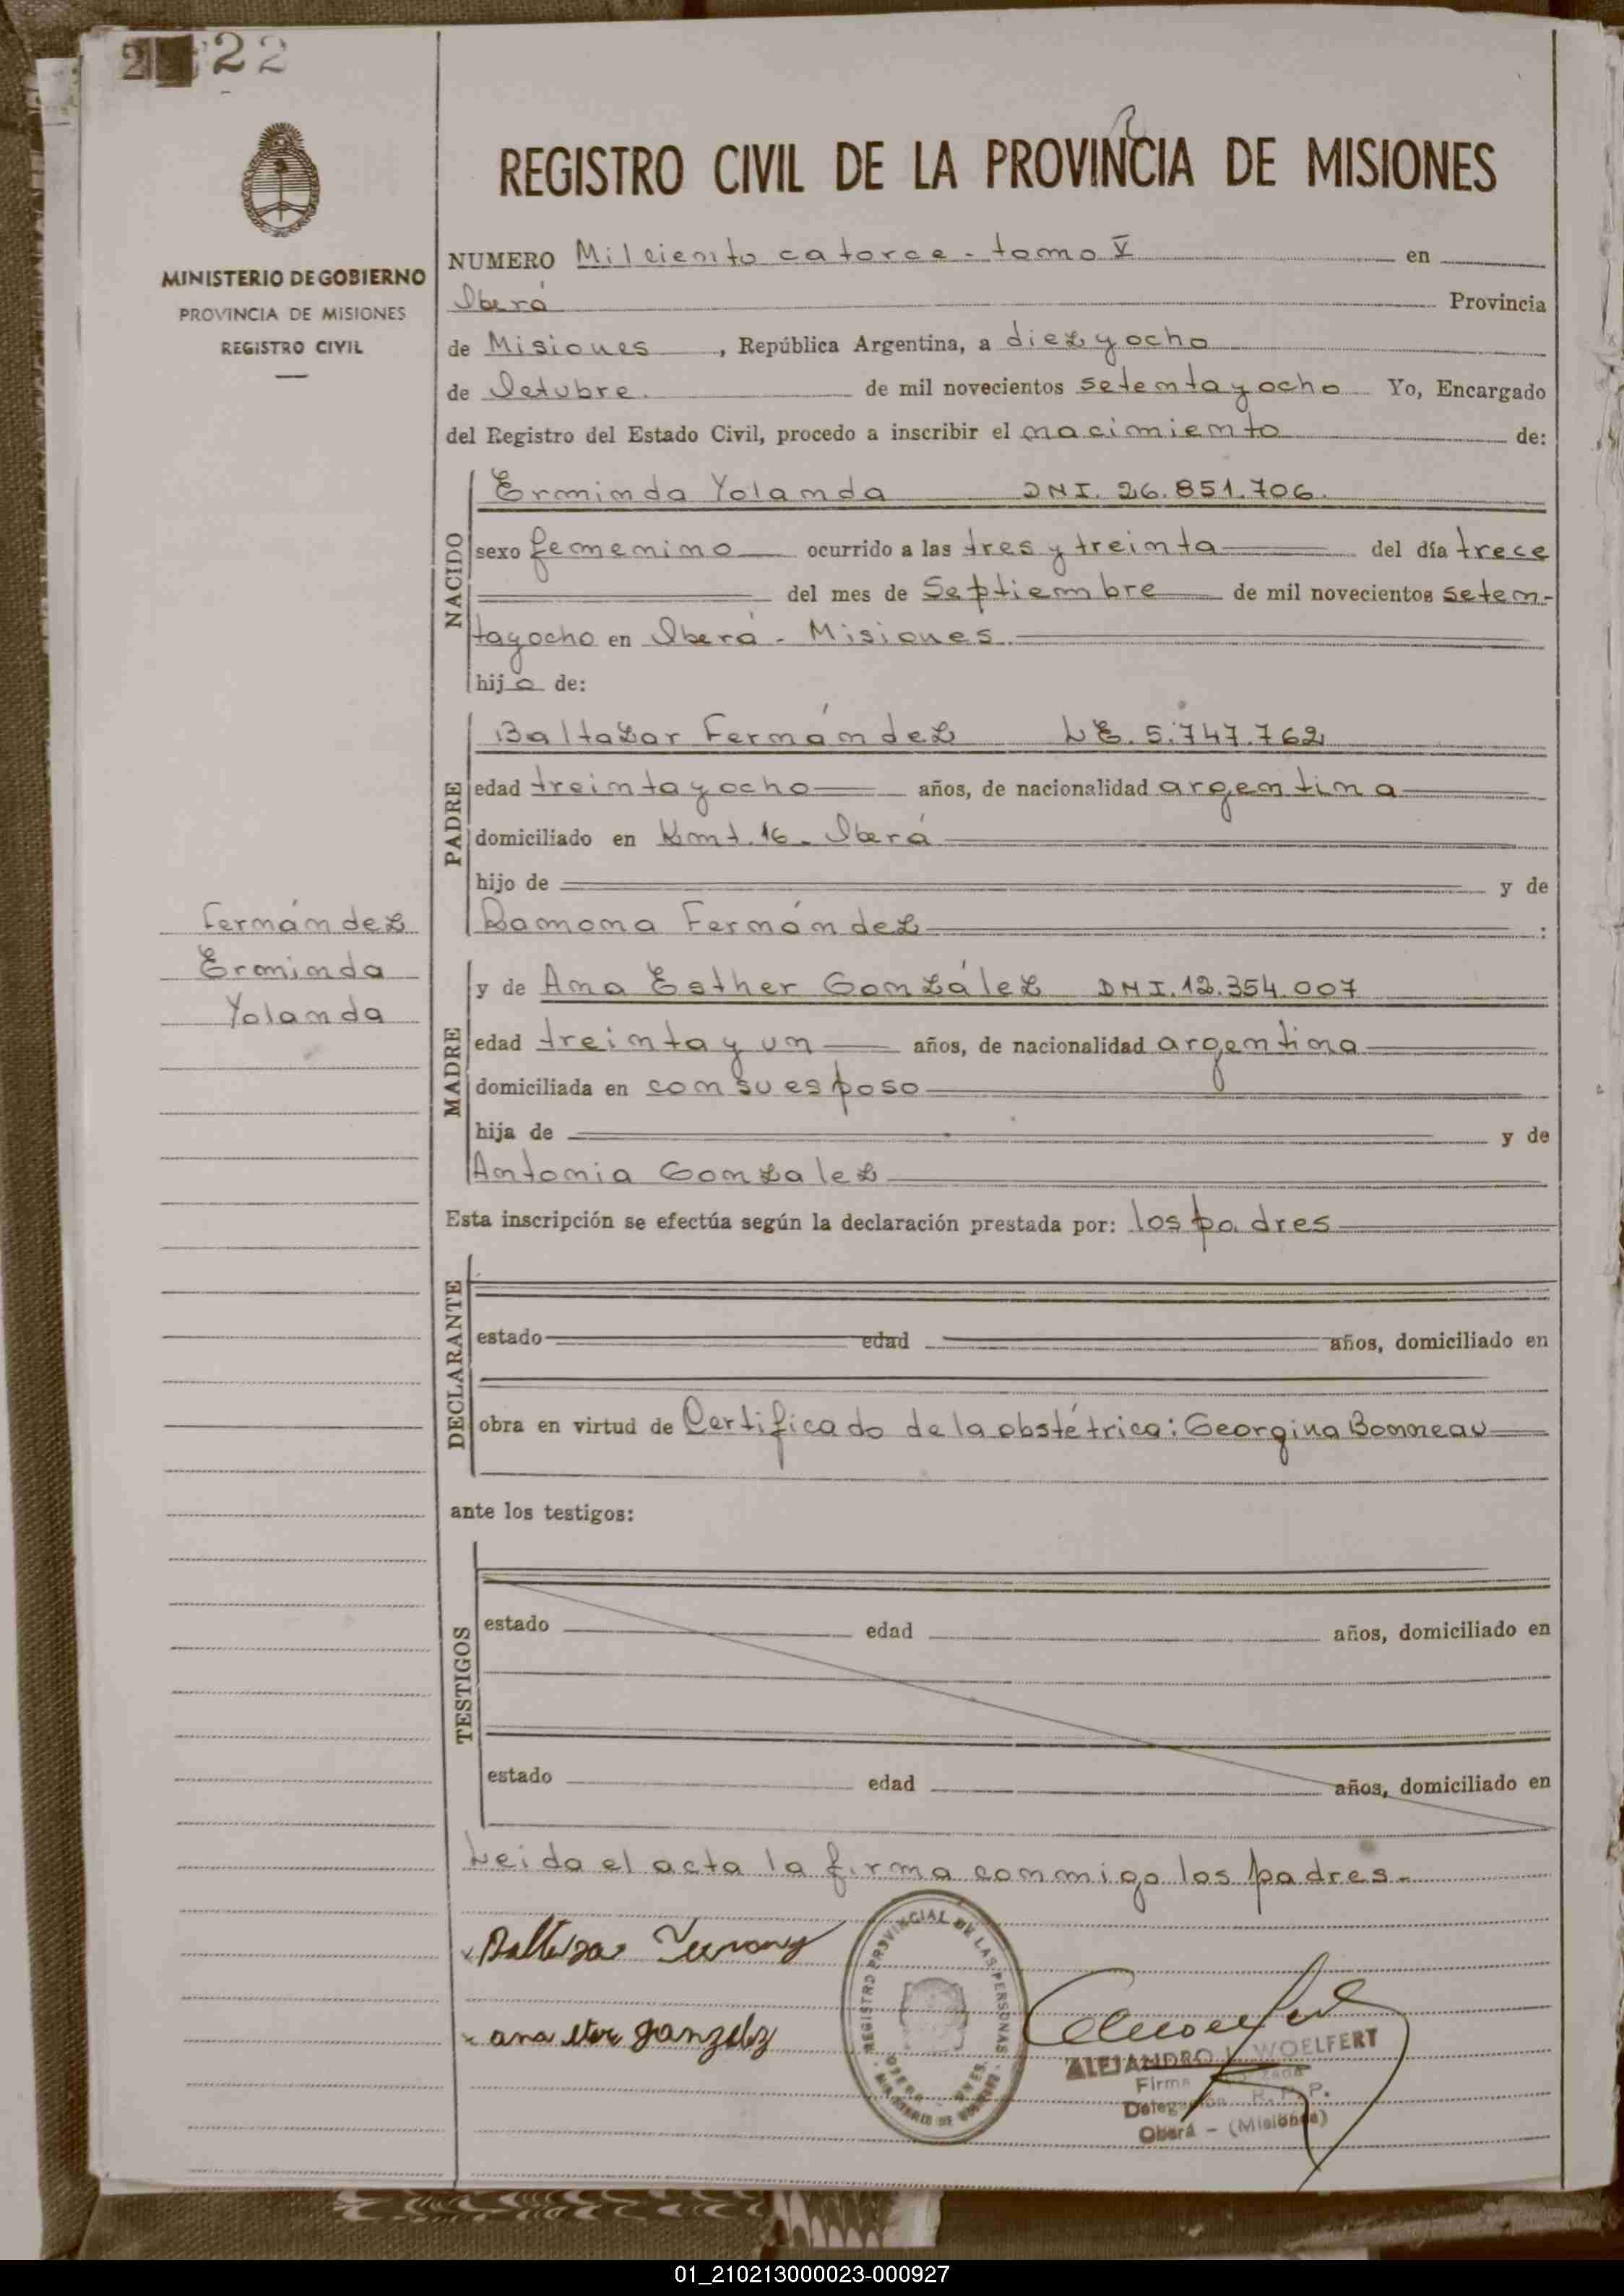 22
REGISTRO CIVIL DE LA PROVINCIA DE MISIONES
MINISTERIO DE GOBIERNO
PROVINCIA DE MISIONES
REGISTRO CIVIL
NUMERO Mil ciento catorce - tomo V en
Oberá Provincia
de Misiones, República Argentina, a diez y ocho
de Octubre. de mil novecientos setenta y ocho Yo, Encargado
del Registro del Estado Civil, procedo a inscribir el nacimiento de:
NACIDO
Erminda Yolanda DNI. 26.851.706.
sexo femenino ocurrido a las tres y treinta del día trece
del mes de Septiembre de mil novecientos seten-
ta y ocho en Oberá - Misiones.
hija de:
PADRE
Baltazar Fernández L.E. 5.747.762
edad treinta y ocho años, de nacionalidad argentina
domiciliado en Kmt. 16 - Oberá
hijo de y de
Ramona Fernández :
Fernández
Erminda
Yolanda
MADRE
y de Ana Esther González DNI. 12.354.007
edad treinta y un años, de nacionalidad argentina
domiciliada en con su esposo
hija de y de
Antonia Gonzalez
Esta inscripción se efectúa según la declaración prestada por: los padres
DECLARANTE
estado edad años, domiciliado en
obra en virtud de Certificado de la obstétrica: Georgina Bonneau
ante los testigos:
TESTIGOS
estado edad años, domiciliado en
estado edad años, domiciliado en
Leida el acta la firma conmigo los padres.
x Baltazar
x ana gonzalez
REGISTRO PROVINCIAL DE LAS PERSONAS
ALEJANDRO WOELFERT
Firma
Delegación R. P. P.
Oberá - (Misiones)
01_210213000023-000927